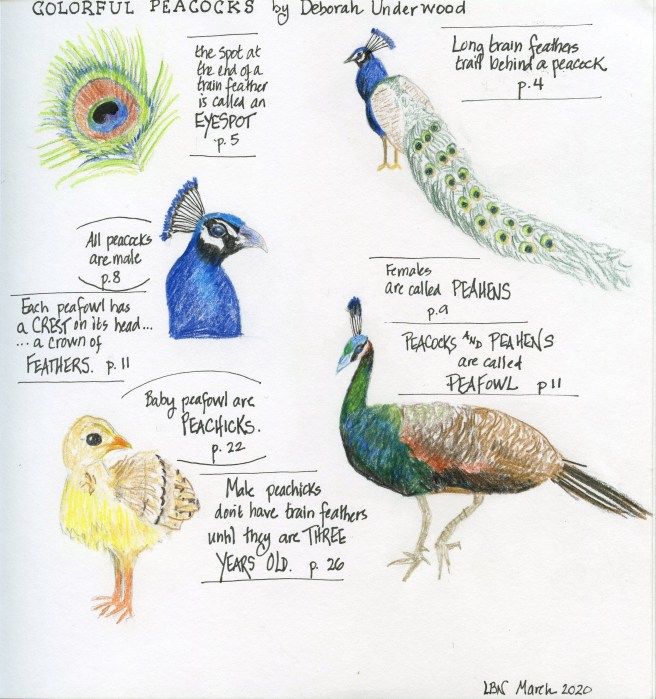 COLORFUL PEACOCKS by Deborah Underwood
the spot at
the end of a
train feather
is called an
EYESPOT
p. 5
Long train feathers
trail behind a peacock
p. 4
All peacocks
are male
p. 8
Each peafowl has
a CREST on its head...
... a crown of
FEATHERS. p. 11
Females
are called PEAHENS
p. 9
PEACOCKS AND PEAHENS
are called
PEAFOWL p 11
Baby peafowl are
PEACHICKS.
p. 22
Male peachicks
don't have train feathers
until they are THREE
YEARS OLD. p. 26
LBN March 2020